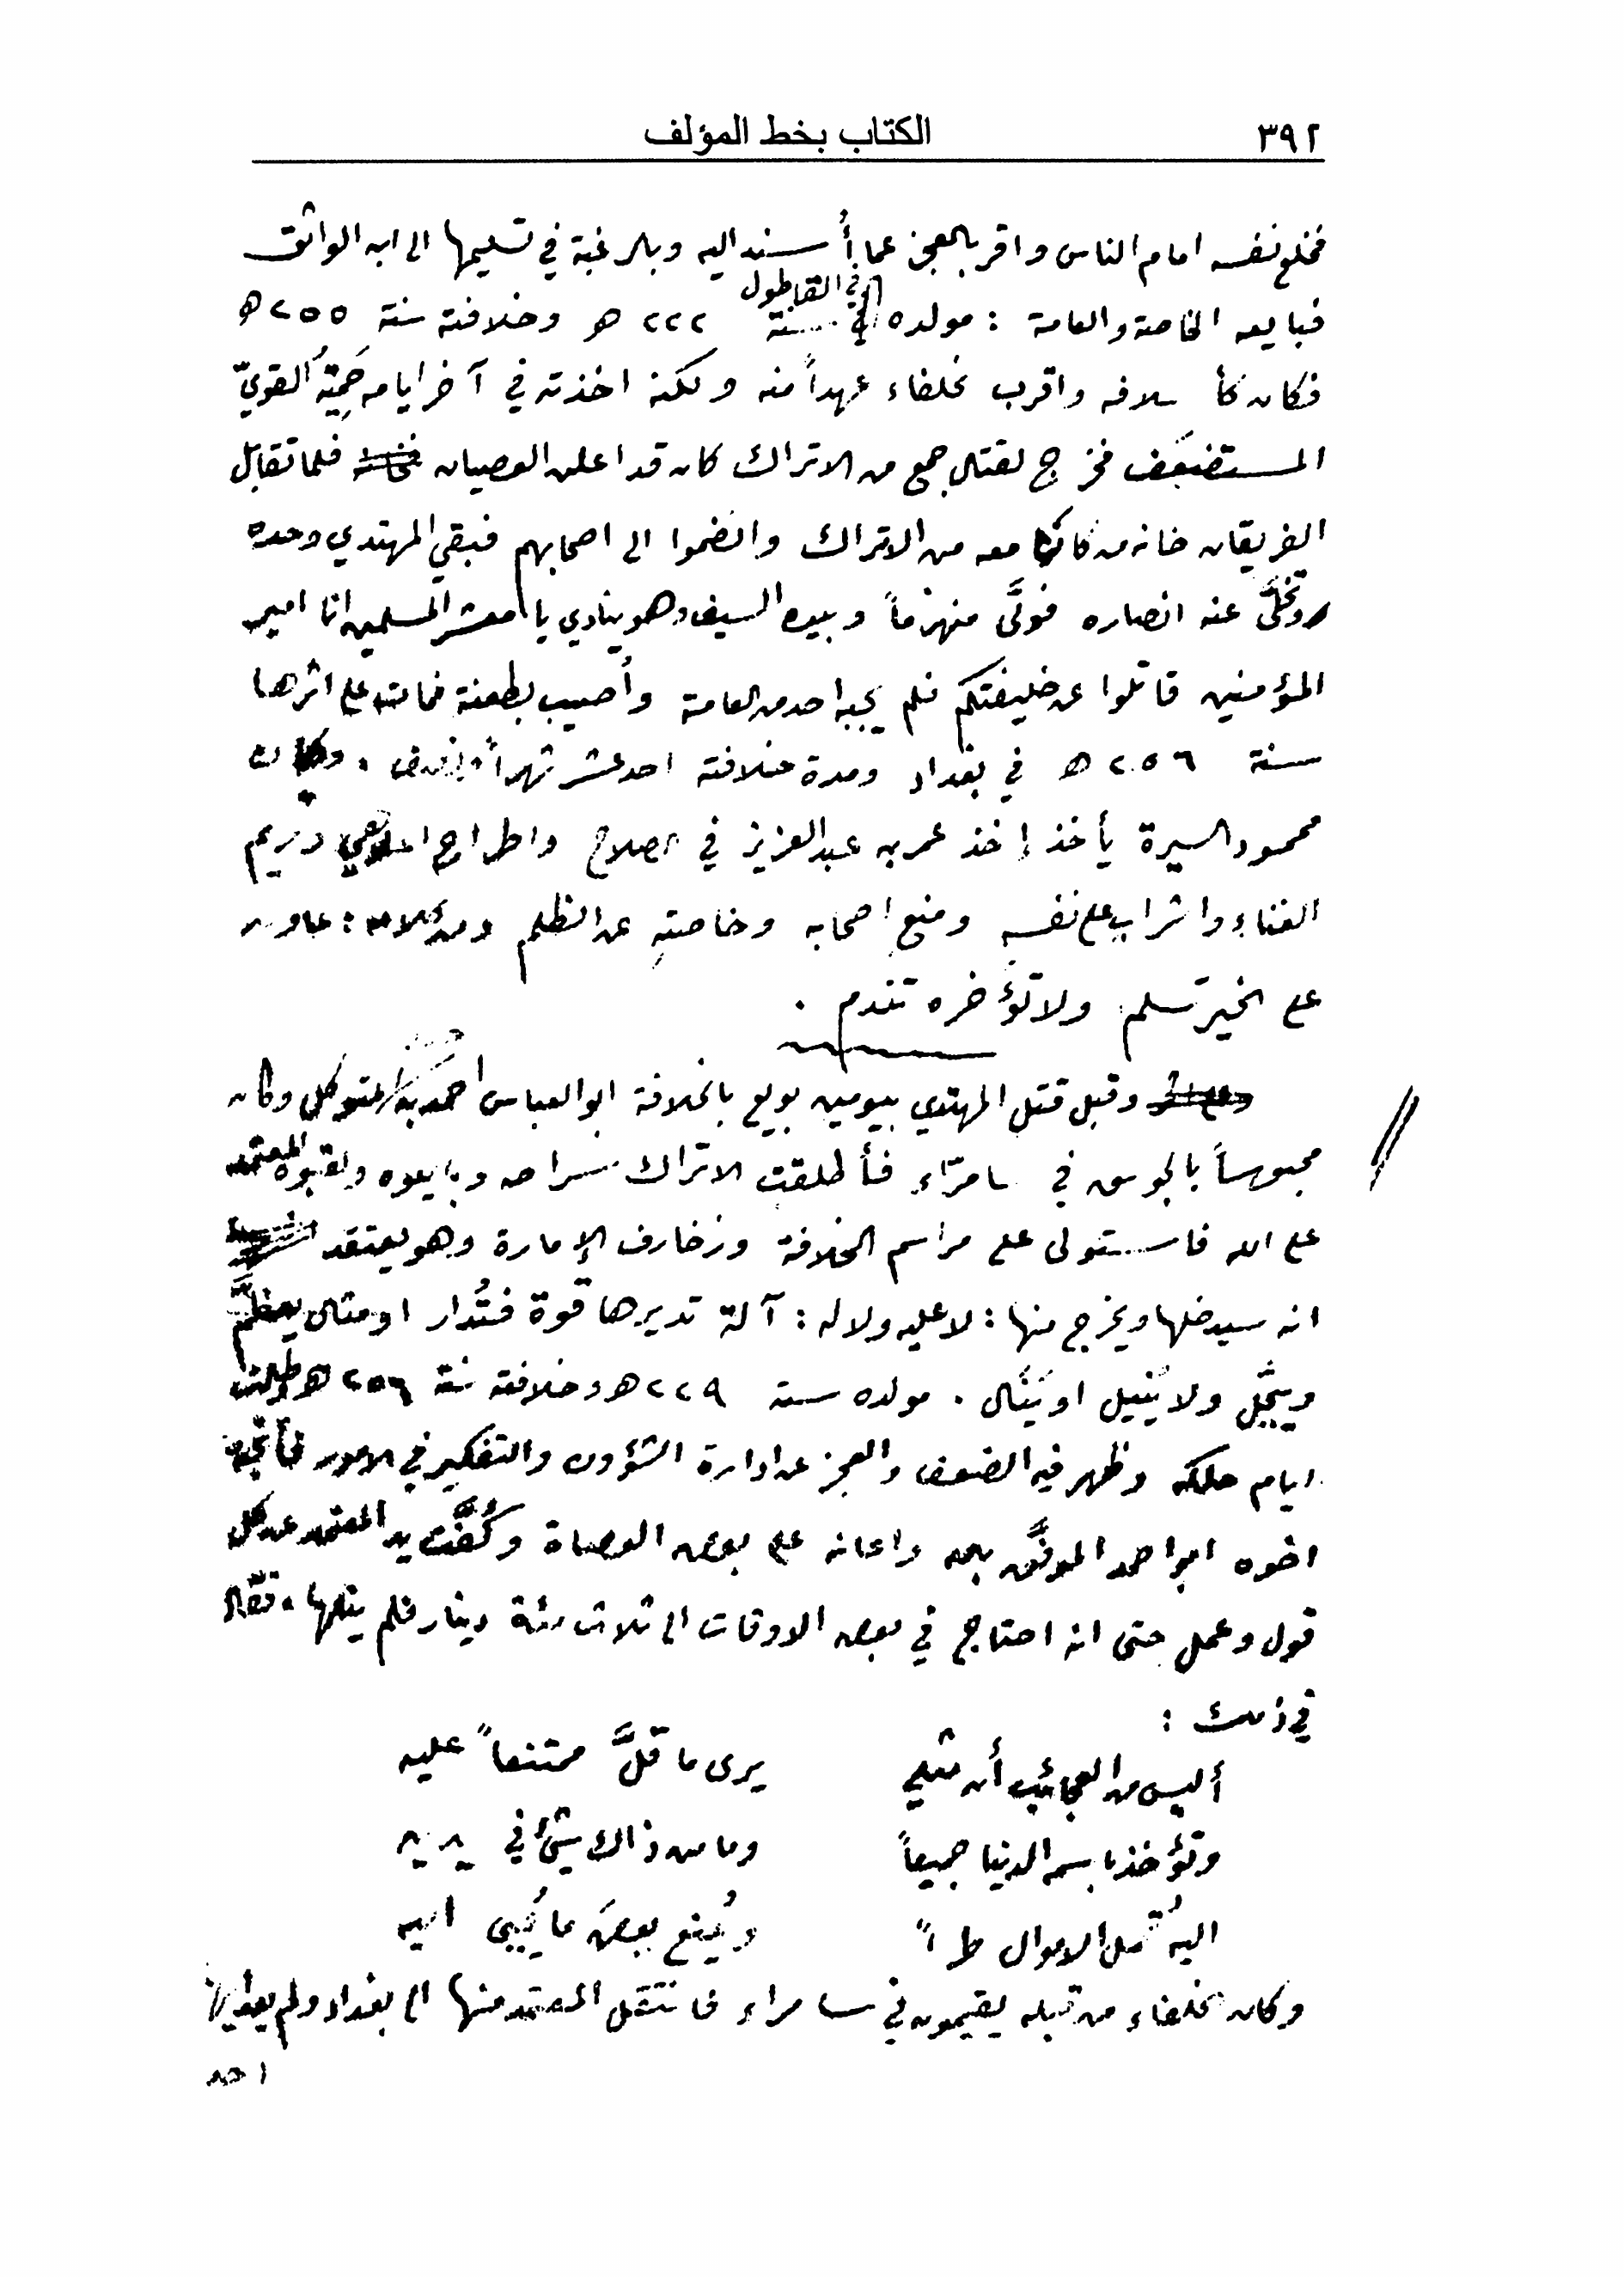 ٣٩٢ الكتاب بخط المؤلف
فخلع نفسه امام الناس واقر بالعجز عما أُسند اليه وبالرغبة في تسليمها الى ابن الواثق
فبايعه الخاصة والعامة : مولده في القاطول سنة ٢٢٢ هـ وخلافته سنة ٢٥٥ هـ
فكان كأسلافه واقرب الخلفاء عهداً منه ولكنه اخذته في آخر ايامه حَمِيَّةُ القويّ
المستضعَف فخرج لقتال جمع من الاتراك كان قد اعلن العصيان فلما تقابل
الفريقان خانه من كانوا معه من الاتراك وانضموا الى اصحابهم فبقي المهتدي وحده
وتخلَّى عنه انصاره فولَّى منهزماً وبيده السيف وهو ينادي يا معشر المسلمين انا امير
المؤمنين قاتلوا عن خليفتكم فلم يجبه احد من العامة وأُصيب بطعنة فمات على اثرها
سنة ٢٥٦ هـ في بغداد ومدة خلافته احد عشر شهراً وكان
محمود السيرة يأخذ إخذ عمر بن عبد العزيز في الصلاح واطراح الملاهي وتحريم
الغناء والشراب على نفسه ومنع اصحابه وخاصته عن الظلم ومن كلامه : عاون
على الخير تسلم ولا تؤخره تندم .
وقبل قتل المهتدي بيومين بويع بالخلافة ابو العباس احمد بن المتوكل وكان
محبوساً بالجوسق في سامرّاء فأطلقت الاتراك سراحه وبايعوه ولقبوه المعتمد
على الله فاستولى على مراسم الخلافة وزخارف الإمارة وهو يعتقد
انه سيدخلها ويخرج منها : لا عليه ولا له : آلة تديرها قوة فتُدار او مثال يعظَّم
ويبجَّل ولا يُنيل او يَنال . مولده سنة ٢٢٩ هـ وخلافته سنة ٢٥٦ هـ وطالت
ايام ملكه وظهر فيه الضعف والعجز عن ادارة الشؤون والتفكير في الامور فأنجده
اخوه ابو احمد الموفَّق بالله واعانه على بعض العصاة وكُفَّت يد المعتمد عن كل
قول وعمل حتى انه احتاج في بعض الاوقات الى ثلاث مئة دينار فلم ينلها ، فقال
في ذلك :
أليس من العجائب أن مثلي يرى ما قلَّ ممتنعاً عليه
وتؤخذ باسمه الدنيا جميعاً وما من ذاك شيء في يديه
اليه تُحمل الاموال طراً ويُمنع بعضَ ما يُجبى اليه
وكان الخلفاء من قبله يقيمون في سامراء فانتقل المعتمد منها الى بغداد ولم يعد اليها
احد